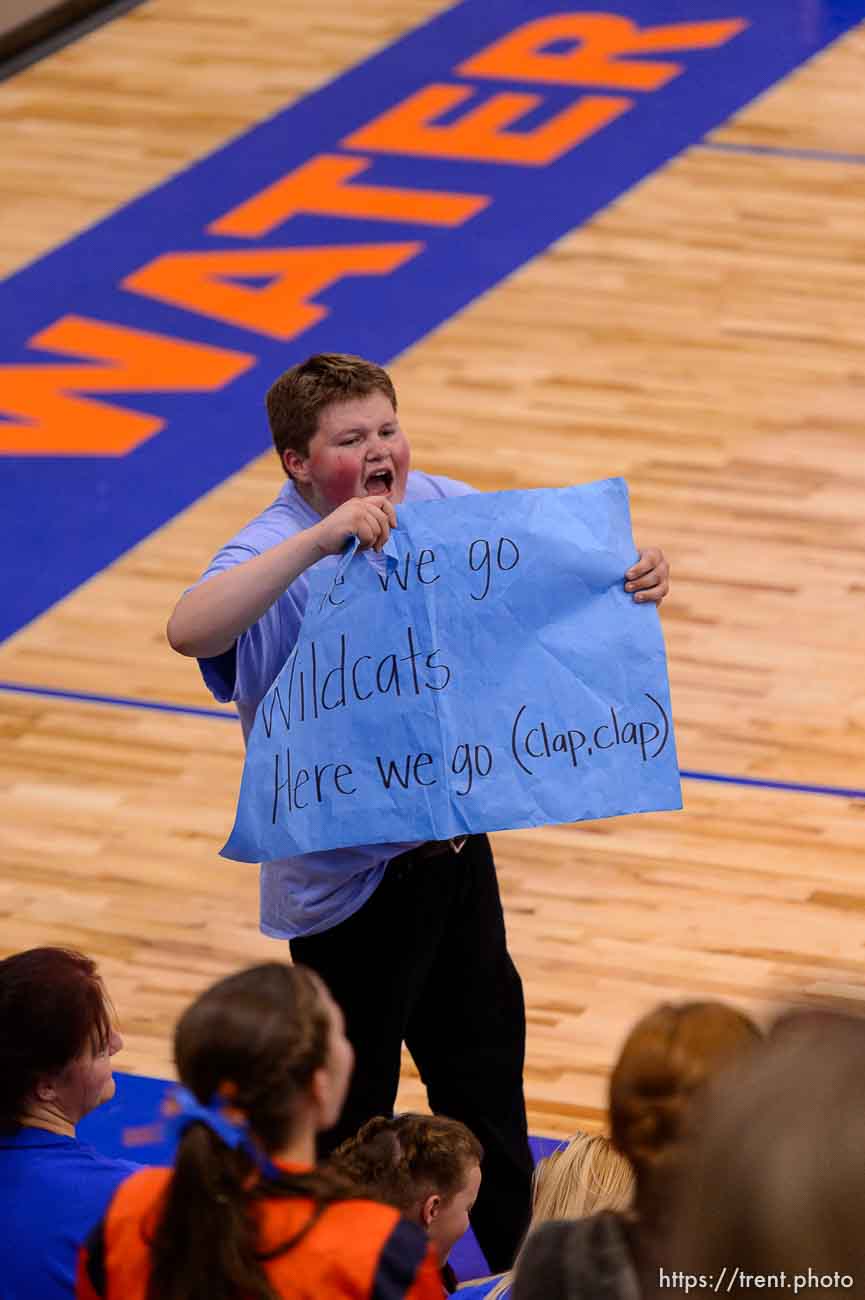 WATER
we go
Wildcats
Here we go (clap, clap)
https://trent.photo